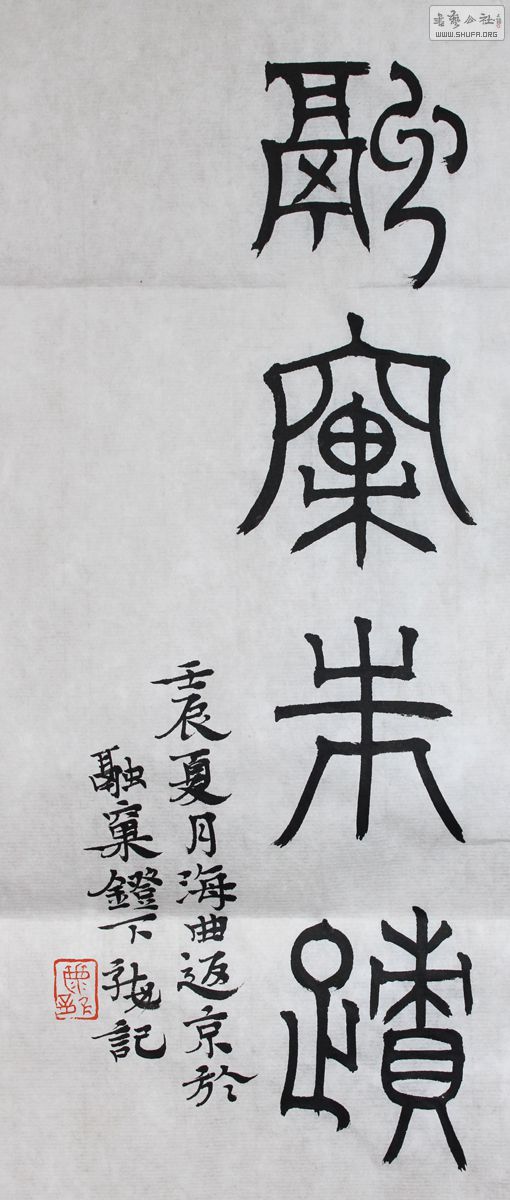 書藝公社
WWW.SHUFA.ORG
融窠朱蹟
壬辰夏月海曲返京於
融窠鐙下記